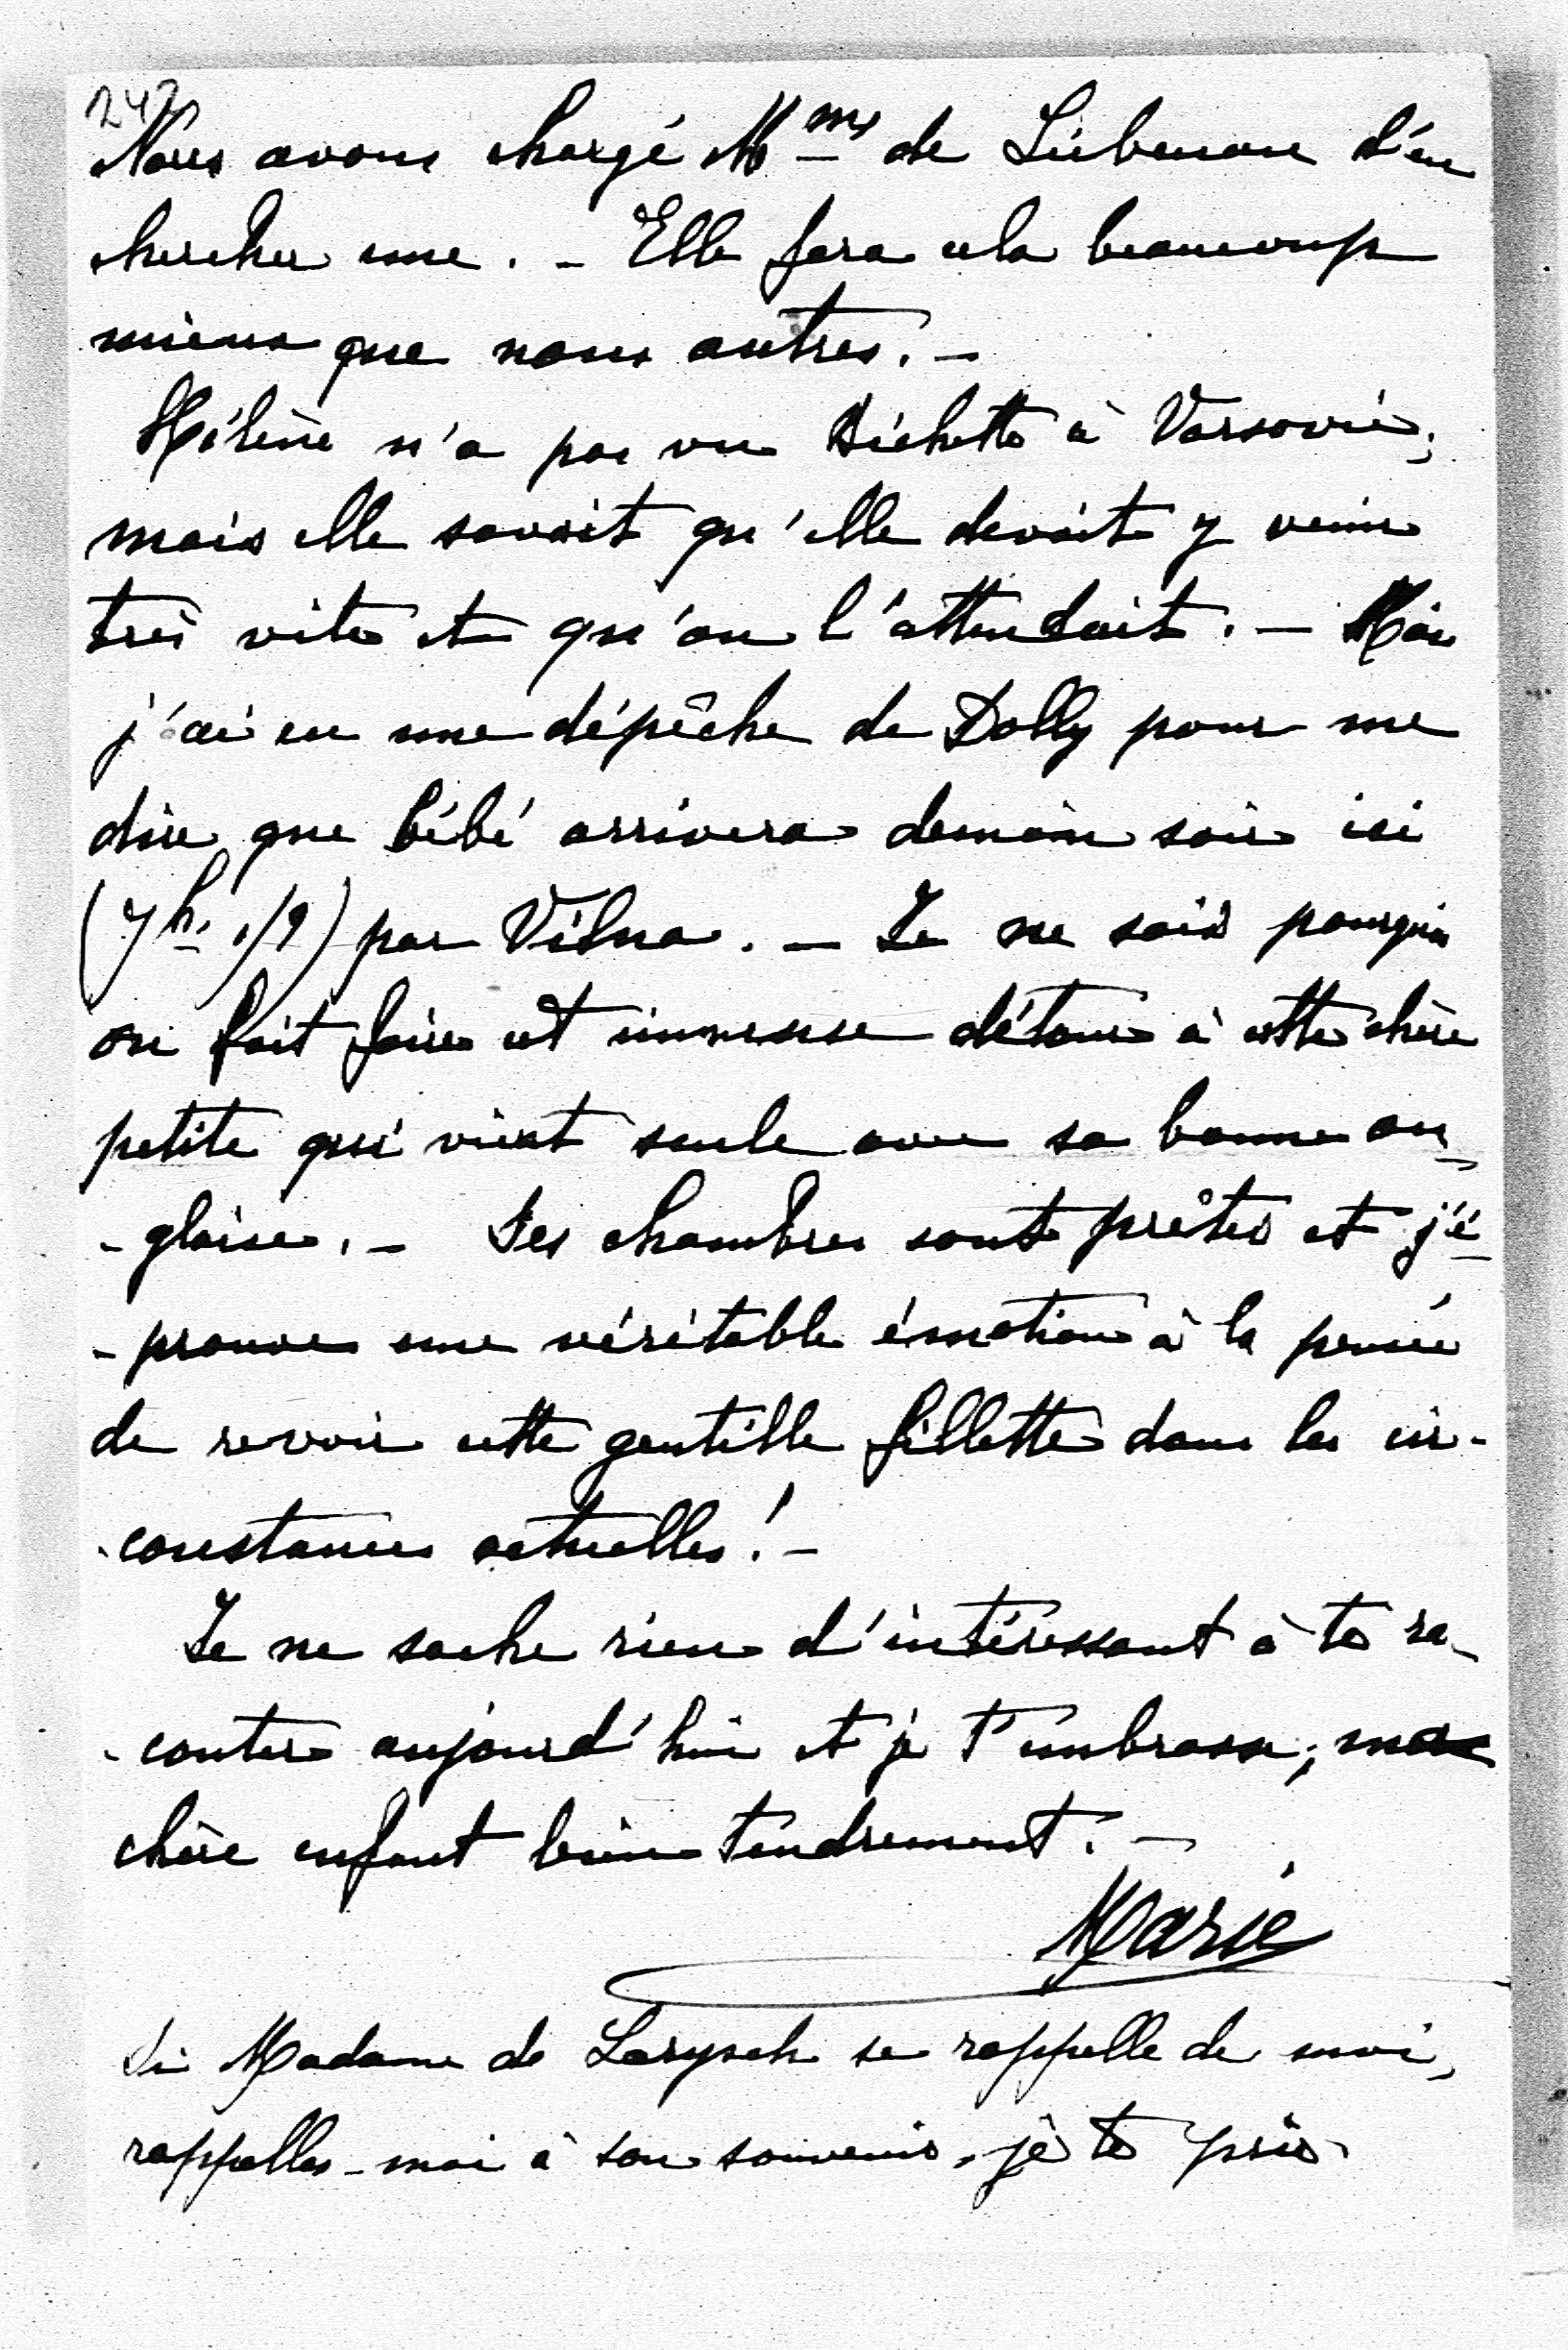 242
Nous avons chargé Mme de Liebenau d'en
chercher une. - Elle fera cela beaucoup
mieux que nous autres. -
Hélène n'a pas vu Bichette à Varsovie,
mais elle savait qu'elle devait y venir
très vite et qu'on l'attendait. - Mais
j'ai eu une dépêche de Dolly pour me
dire que bébé arrivera demain soir ici
(7h. 1/2) par Vilna. - Je ne sais pourquoi
on fait faire cet immense détour à cette chère
petite qui vient seule avec sa bonne an-
-glaise. - Les chambres sont prêtes et j'é-
-prouve une véritable émotion à la pensée
de revoir cette gentille fillette dans les cir-
-constances actuelles! -
Je ne sache rien d'intéressant à te ra-
-conter aujourd'hui et je t'embrasse, ma
chère enfant bien tendrement. -
Marie
Si Madame de Larysch se rappelle de moi,
rappelles-moi à son souvenir, je te prie